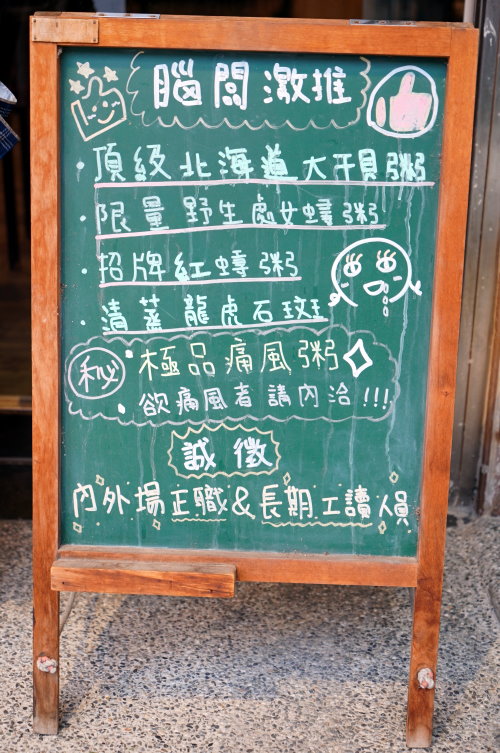 腦闆激推
・頂級北海道大干貝粥
・限量野生處女蟳粥
・招牌紅蟳粥
・清蒸龍虎石斑
秘・極品痛風粥
欲痛風者請內洽!!!
誠徵
內外場正職&長期工讀人員